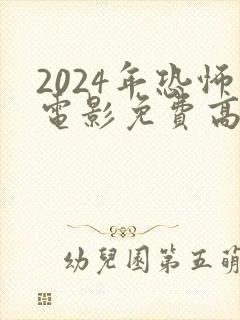 2024年恐怖
電影免費高
幼兒園第五萌